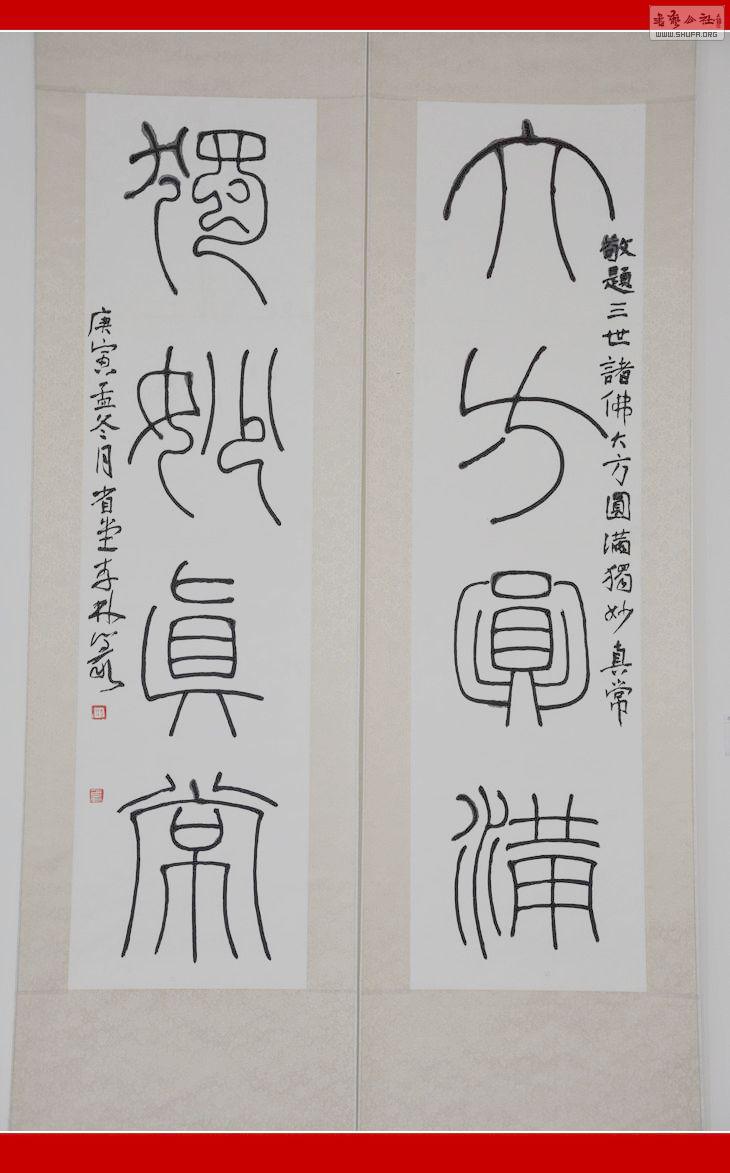 書藝公社
WWW.SHUFA.ORG
敬題三世諸佛大方圓滿獨妙真常
大方圓滿
獨妙眞常
庚寅孟冬月省堂李林